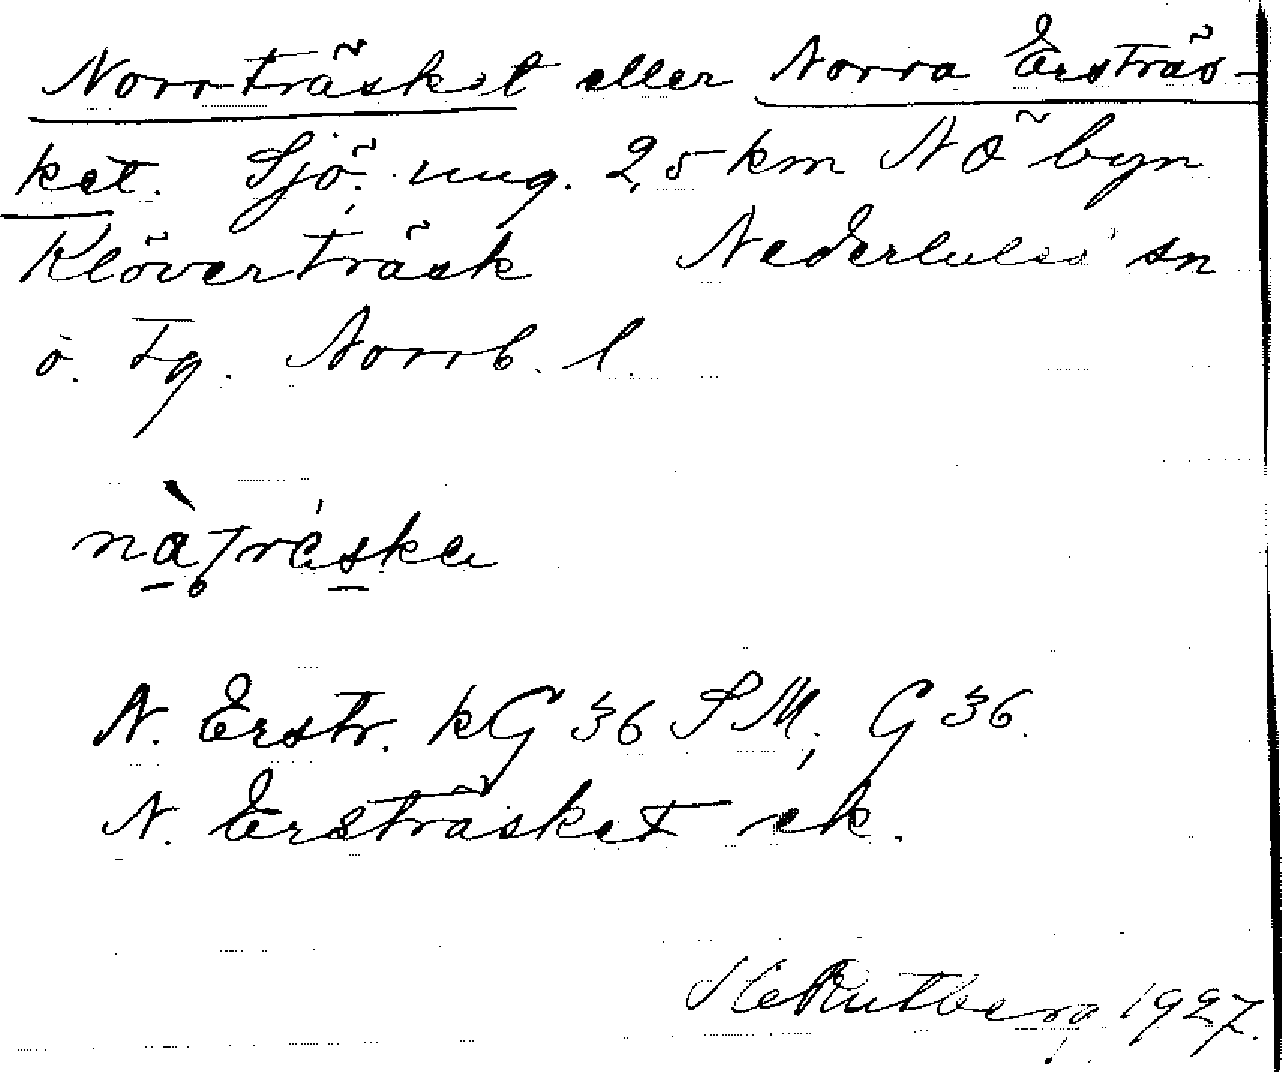 Norrträsket eller Norra Ersträs-
ket. Sjö, ung. 2,5 km NÖ byn
Klöverträsk Nederluleå sn
ö. Tg. Norrb. l.
N. Erstr. kG 36 SM; G 36.
N. Ersträsket ek.
H Rutberg 1927.